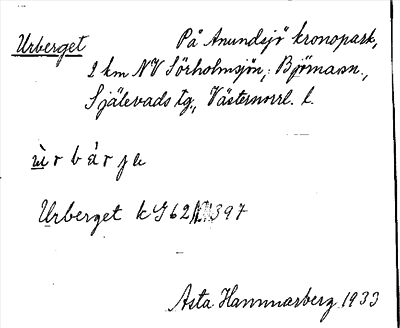 Urberget På Anundsjö kronopark,
2 km NV Sörholmsjön, Björnann.,
Själevads tg., Västernorrl. l.
ùrbárje
Urberget kG62 397
Asta Hammarberg 1933